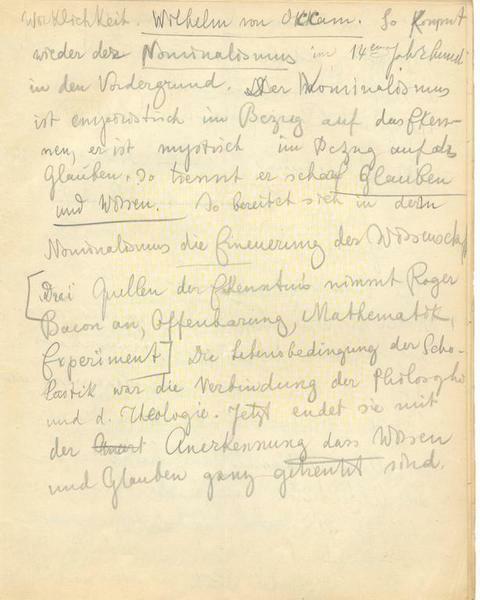 Wirklichkeit. Wilhelm von Okkam. So kommt
wieder der Nominalismus im 14ten Jahrhundert
in den Vordergrund. Der Nominalismus
ist empiristisch im Bezug auf das Erken-
nen, er ist mystisch im Bezug auf das
Glauben. So trennt er scharf Glauben
und Wissen. So bereitet sich in dem
Nominalismus die Erneuerung der Wissenschaft
[Drei Quellen der Erkenntnis nimmt Roger
Bacon an, Offenbarung, Mathematik,
Experiment] Die Lebensbedingung der Scho-
lastik war die Verbindung der Philosophie
und d. Theologie. Jetzt endet sie mit
der Anerkennung dass Wissen
und Glauben ganz getrennt sind.